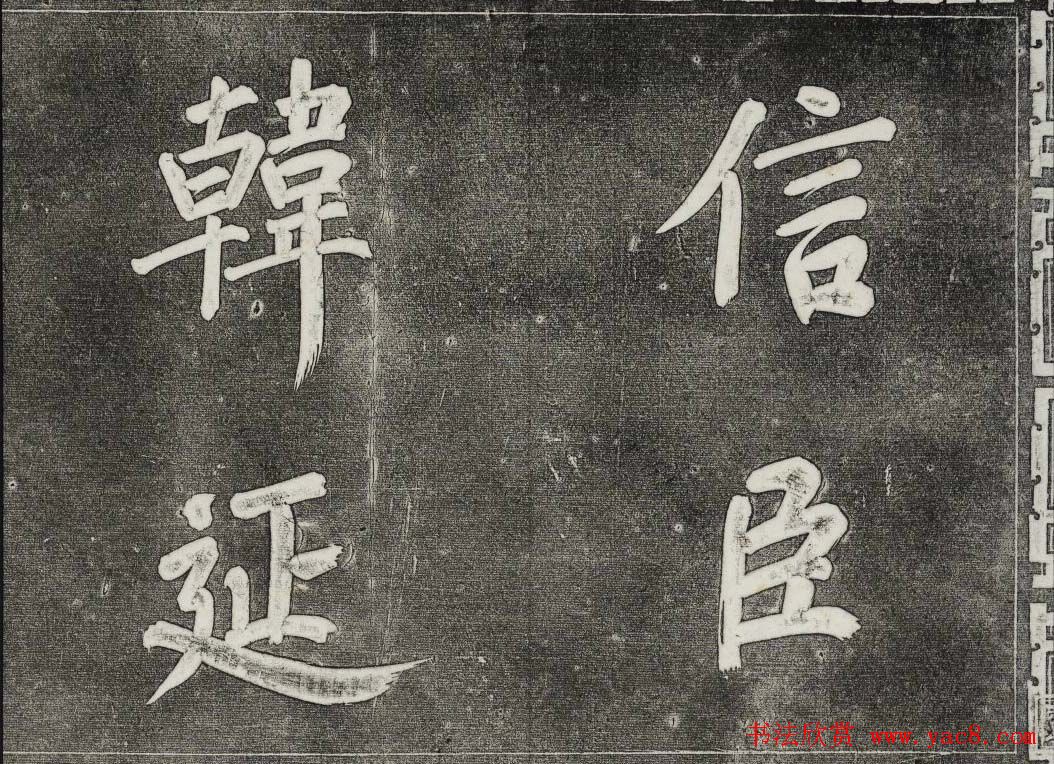 信臣
韓延
书法欣赏 www.yac8.com